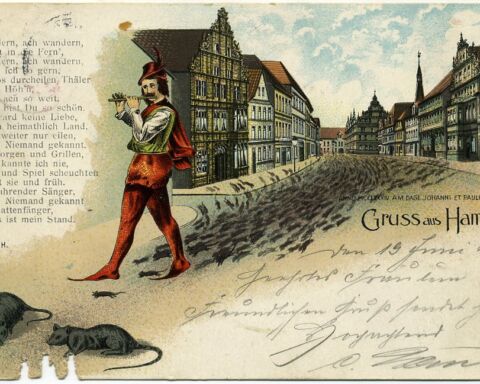 dern, ach wandern,
t in die Fern',
ern, ach wandern,
Ich so gern,
os durcheilen Thäler
Höh'n,
ach so weit,
bist Du so schön.
ard keine Liebe,
n heimathlich Land,
weiter nur eilen,
Niemand gekannt.
orgen und Grillen,
kannte ich nie,
und Spiel scheuchten
t sie und früh.
ahrender Sänger,
Niemand gekannt
attenfänger,
s ist mein Stand.
H.
AM DAGE JOHANNI ET PAULI
Gruss aus Ham
den 19 Juni
Freundlichen Gruß sendet
Hochachtend